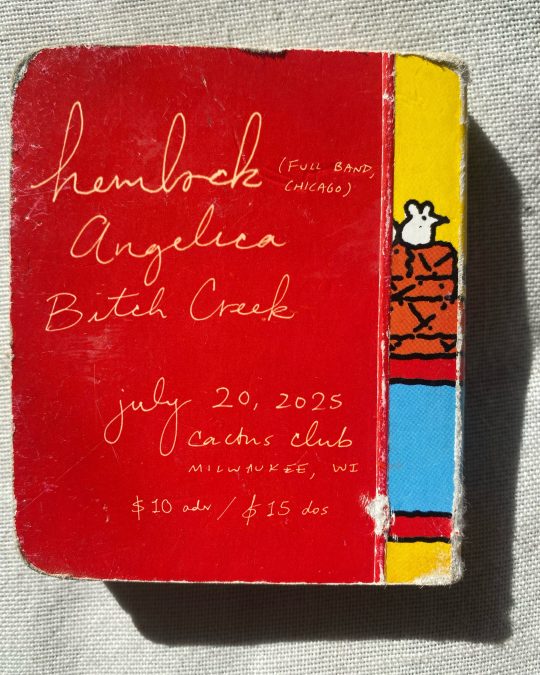 hemlock (FULL BAND,
CHICAGO)
Angelica
Bitch Creek
july 20, 2025
cactus club
MILWAUKEE, WI
$10 adv / $15 dos